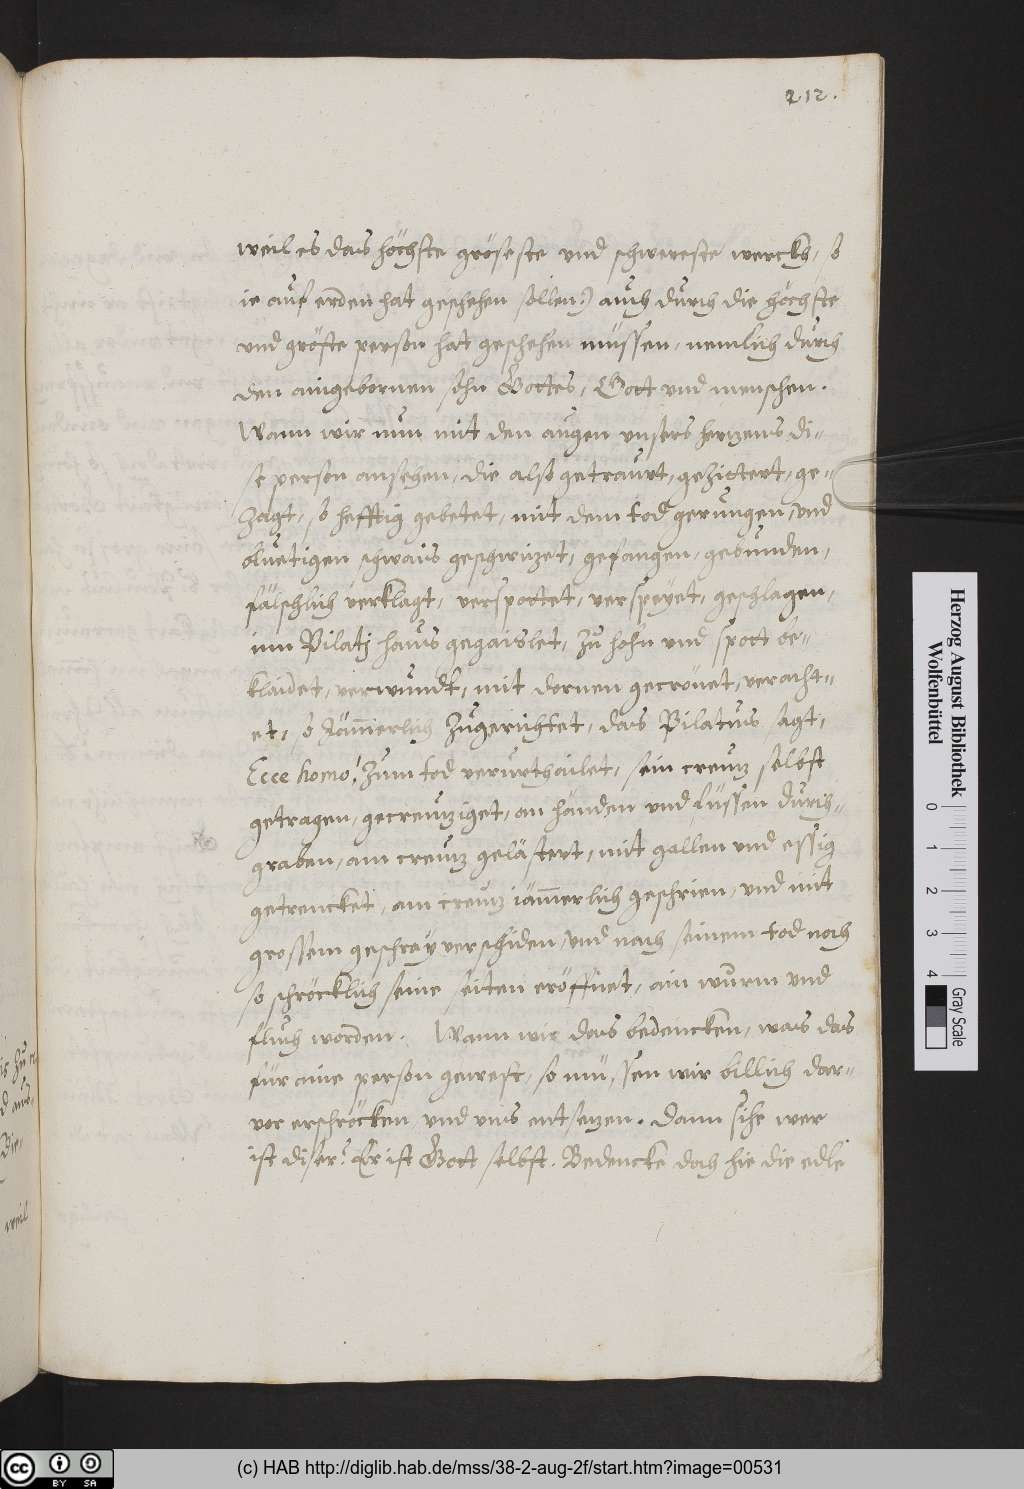 212.
weil es das höchste gröseste und schwereste werckh, so
ie auf erden hat geschehen sollen:) auch durch die höchste
und gröste person hat geschehen müssen, nemlich durch
den aingebornen sohn Gottes, Gott und menschen.
Wann wir nun mit den augen unsers herzens di-
se person ansehen, die also getraurt, gezittert, ge-
zagt, so hefftig gebetet, mit dem tod gerungen, und
bluetigen schwais geschwizet, gefangen, gebunden,
fälschlich verklagt, verspottet, verspeyet, geschlagen,
inn Pilatj haus gegaislet, zu hohn und spott be-
klaidet, verwundt, mit dornen gecrönet, veracht-
et, so Jämerlich zugerichtet, das Pilatus sagt,
Ecce homo! zum tod verurthailet, sein creuz selbst
getragen, gecreuziget, an händen und füssen durch-
graben, am creuz gelästert, mit gallen und essig
getrencket, am creuz iämerlich geschrien, und mit
grossem geschrey verschiden, und nach seinem tod noch
so schröcklich seine seiten eröffnet, ain wurm und
fluch worden. Wann wir das bedencken, was das
für aine person gewest, so müssen wir billich dar-
vor erschröcken und uns entsezen. Dann sihe wer
ist diser? Er ist Gott selbst. Bedencke doch hie die edle
weil
Herzog August Bibliothek
Wolfenbüttel
0 1 2 3 4
Gray Scale
cc BY SA
(c) HAB http://diglib.hab.de/mss/38-2-aug-2f/start.htm?image=00531